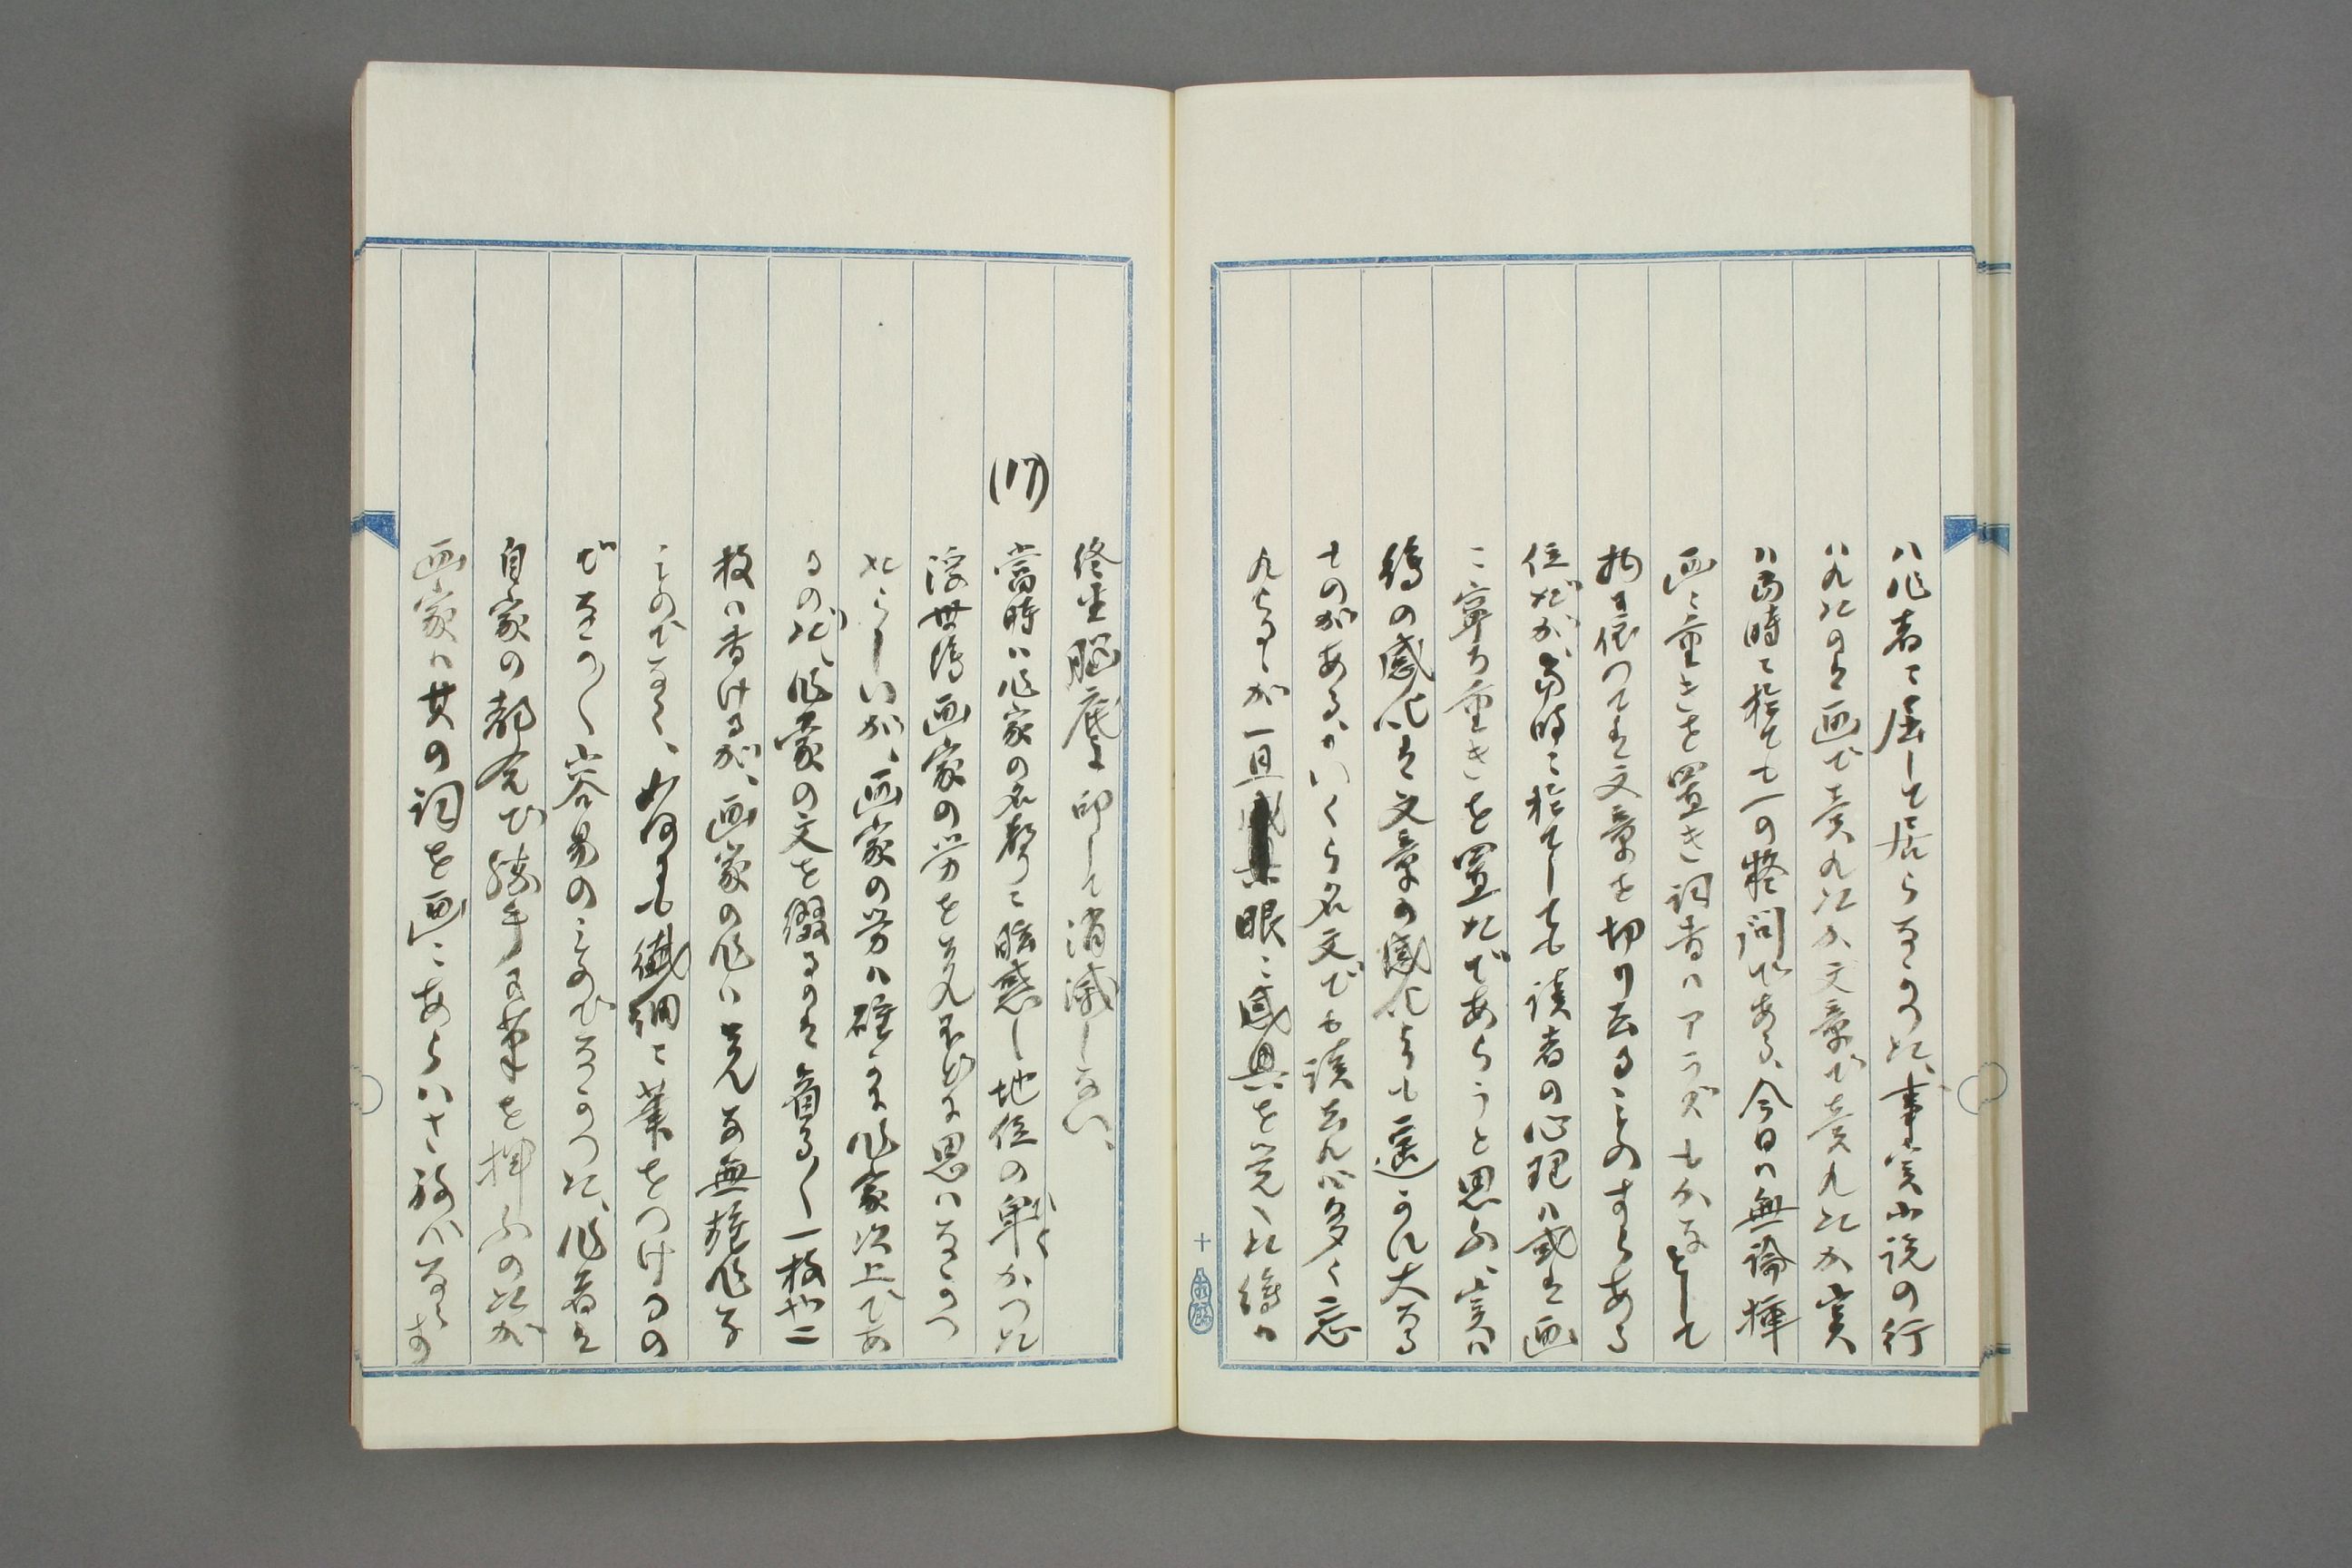 ハ作者に屈して居らなかつた、事実小説の行
ハれたのは画で売れたか文章で売れたか実
ハ当時に於ても一の疑問である、今日ハ無論挿
画に重きを置き詞書ハアラズもがなとして
物に依つては文章を切り去ることのすらある
位だが、当時に於てしても読者の心理ハ或は画
に寧ろ重きを置たであらうと思ふ、実ハ
絵の感化は文章の感化よりも遥かに大なる
ものがある、いくら名文でも読去れバ多く忘
れらるゝが一旦眼に感興を覚へた絵ハ
終生脳底に印して消滅しない、
(17) 当時ハ作家の名声に眩惑し地位の卑しかつた
浮世絵画家の労を左程に思ハなかつ
たらしいが、画家の労ハ確かに作家以上であ
るのだ、作家の文を綴るのは、一枚や二
枚ハ書けるが、画家の作ハそんな無雑作な
ものでなく、如何にも繊細に筆をつけるの
でなか〱容易のものでなかつた、作者は
自家の都合で勝手に筆を揮ふのだが
画家ハ其の詞を画にあらハさねバならず